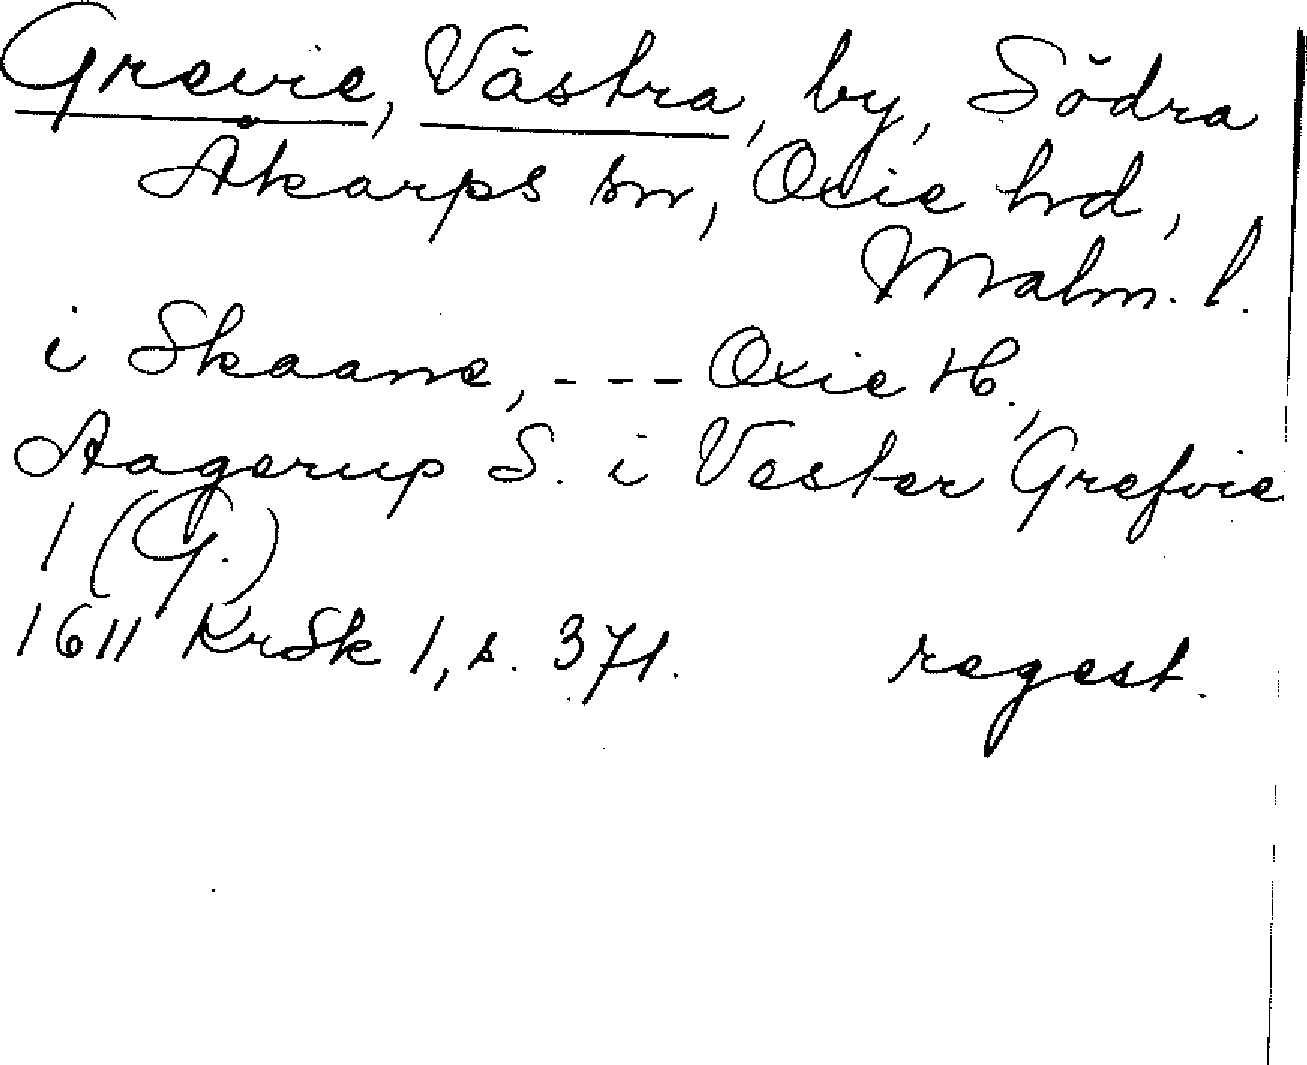 Grevie, Västra, by, Södra
Åkarps sn, Oxie hd,
Malm. l.
i Skaane, --- Oxie H.,
Aagerup S. i Vester Grefvie
1 (G.)
1611 KrSk 1, s. 371. regest.